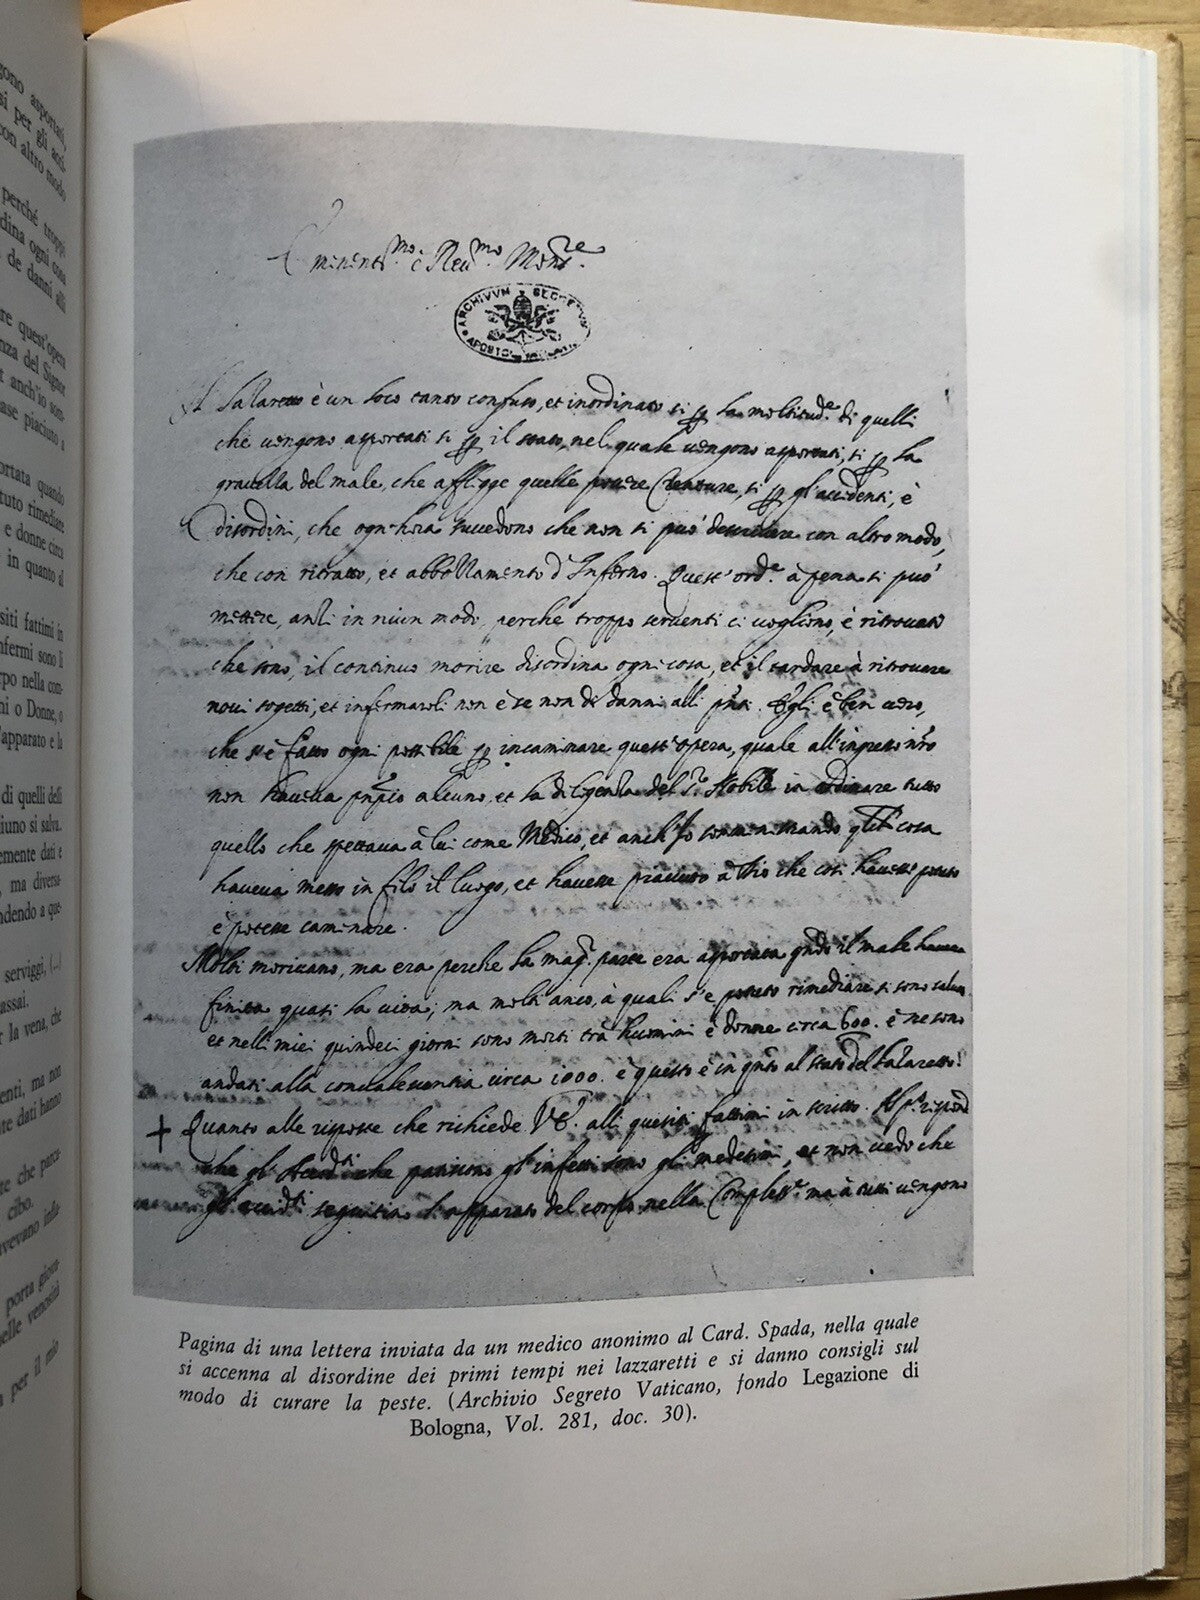 gono asportati,
si per gli acci-
con altro modo
perché troppi
dina ogni cosa
de danni alli
re quest'opera
nza del Signor
t anch'io som-
ase piaciuto a
ortata quando
tuto rimediare
e donne circa
in quanto al
siti fattimi in
nfermi sono li
rpo nella con-
ni o Donne, o
'apparato e la
di quelli delli
iuno si salva.
emente dati e
, ma diversa-
ndendo a que-
serviggi, (...)
assai.
r la vena, che
enti, ma non
te dati hanno
te che parce
cibo.
vevano insla
porta giova-
elle venosità
a per il mio
Eminentmo e Reumo Monre.
ARCHIVVM SECRETVM
APOSTOL
Il Lazaretto è un loco tanto confuso, et inordinato si p la moltitude. di quelli
che vengono asportati si p il stato, nel quale vengono asportati, si p la
gravella del male, che afflige quelle povere Creature, si p gl'accidenti, è
disordini, che ogn'hora succedono che non si può descrivere con altro modo,
che con ritratto, et abbozzamento d'Inferno. Quest'orde. à pena si può
mettere, anzi in niun modo, perche troppo serventi ci vogliono, è ritrovati
che sono, il continuo morire disordina ogni cosa, et il tardare à ritrovare
novi sogetti, et infermaroli non è se non di danni alli pnti. Egli è ben vero,
che s'è fatto ogni possibile p incaminare quest'opera, quale all'ingresso nro
non haveva pnpio alcuno, et la diligenza del Sr. Nobile in ordinare tutto
quello che spettava à lui come Medico, et anch'Io somministrando qlche cosa
haveva messo in filo il luogo, et havesse piaciuto à Dio che così havesse potuto
è potesse caminare.
Molti morivano, ma era perche la mag. parte era asportata qndo il male haveva
finita quasi la vita; ma molti anco, à quali s'è potuto rimediare si sono salvati
et nelli miei quindeci giorni sono morti trà huomini è donne circa 600. è ne sono
andati alla convalescentia circa 1000. è questo è in qnto al stato del Lazaretto.
Quanto alle risposte che richiede VE. alli quesiti fattimi in scritto. Al po. rispondo
che gl'Accidti che patiscono gl'infetti sono gl'medesimi, et non vedo che
gl'accidti seguitino l'apparato del corpo nella Compless.e ma à tutti vengono
Pagina di una lettera inviata da un medico anonimo al Card. Spada, nella quale
si accenna al disordine dei primi tempi nei lazzaretti e si danno consigli sul
modo di curare la peste. (Archivio Segreto Vaticano, fondo Legazione di
Bologna, Vol. 281, doc. 30).